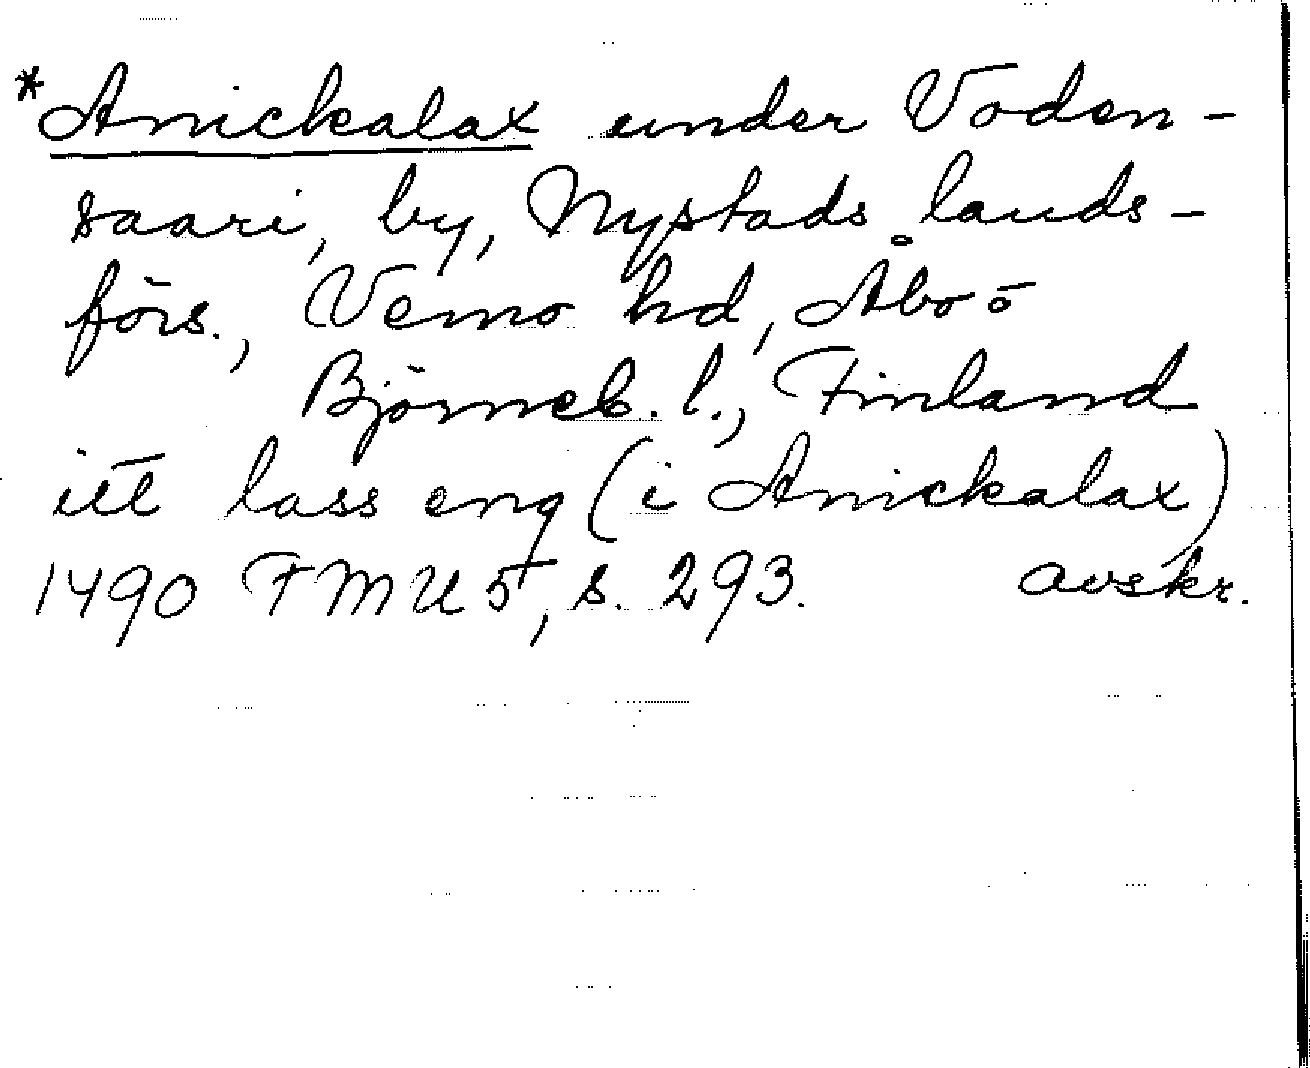 *Anickalax under Voden-
saari, by, Nystads lands-
förs., Vemo hd, Åbo o
Björneb. l., Finland
itt lass eng (i Anickalax)
1490 FMU 5, s. 293. avskr.